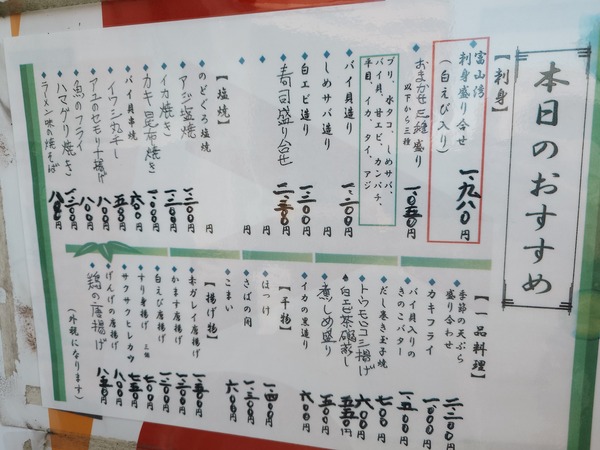 本日のおすすめ
【刺身】
富山湾
刺身盛り合せ
(白えび入り)
一、九八〇円
おまかせ三種盛り
以下から三種
一、〇五〇円
ブリ、水タコ、しめサバ、
バイ貝、甘エビ、カンパチ、
平目、イカ、タイ、アジ
バイ貝造り
一、二〇〇円
しめサバ造り
円
白エビ造り
一、三〇〇円
寿司盛り合せ
円
円
円
【塩焼】
のどぐろ塩焼
円
アジ塩焼
一、三〇〇円
イカ焼き
円
カキ昆布焼き
一、〇〇〇円
バイ貝串焼
六〇〇円
イワシ丸干し
五〇〇円
アユのセモリナ揚げ
八〇〇円
魚のフライ
八〇〇円
ハマグリ焼き
円
ラーメン味の焼そば
円
【一品料理】
季節の天ぷら
盛り合わせ
円
カキフライ
一、〇〇〇円
バイ貝入りの
きのこバター
円
だし巻き玉子焼
七〇〇円
トウモロコシ揚げ
六〇〇円
白エビ茶碗蒸し
五五〇円
煮しめ盛り
五〇〇円
イカの黒造り
六〇〇円
【干物】
ほっけ
円
さばの開
円
こまい
六〇〇円
【揚げ物】
赤ガレイ唐揚げ
円
かます唐揚げ
円
白えび唐揚げ
円
すり身揚げ 三個
七〇〇円
サクサクヒレカツ
七五〇円
げんげの唐揚げ
八〇〇円
鶏の唐揚げ
八五〇円
(外税になります)